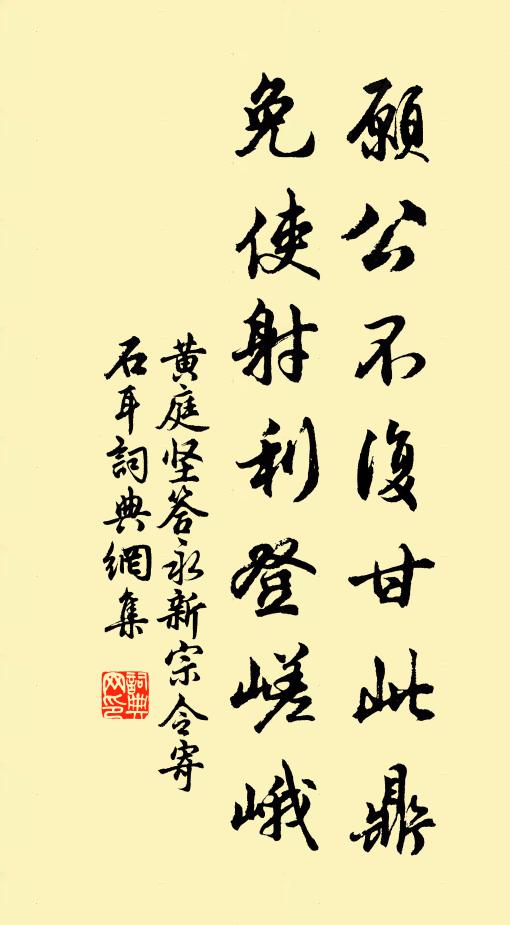 願公不復甘此鼎
免使射利登嵯峨
黄庭坚答永新宗令寄
石耳詞典網集
詞典网印